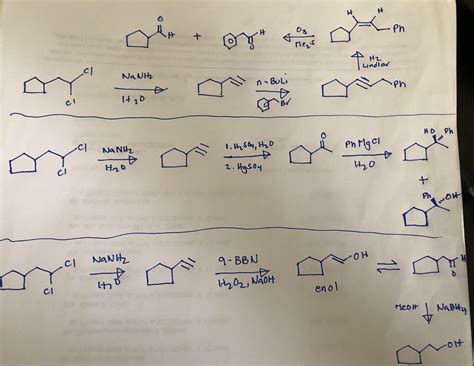 O
H + H
O O3
Me2S H H
Ph
H2
Lindlar
Cl
Cl NaNH2
H2O n-BuLi
Br Ph
Cl
Cl NaNH2
H2O 1. H2SO4, H2O
2. HgSO4 O PhMgCl
H2O HO Ph
+
Ph OH
Cl
Cl NaNH2
H2O 9-BBN
H2O2, NaOH OH
enol H
O
MeOH NaBH4
OH